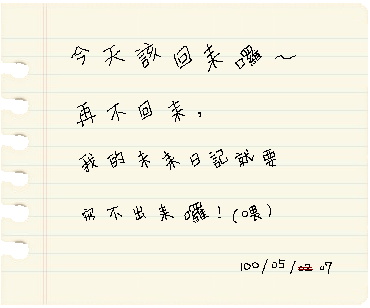 今天該回來囉～
再不回來，
我的未來日記就要
寫不出來囉！(喂)
100/05/07